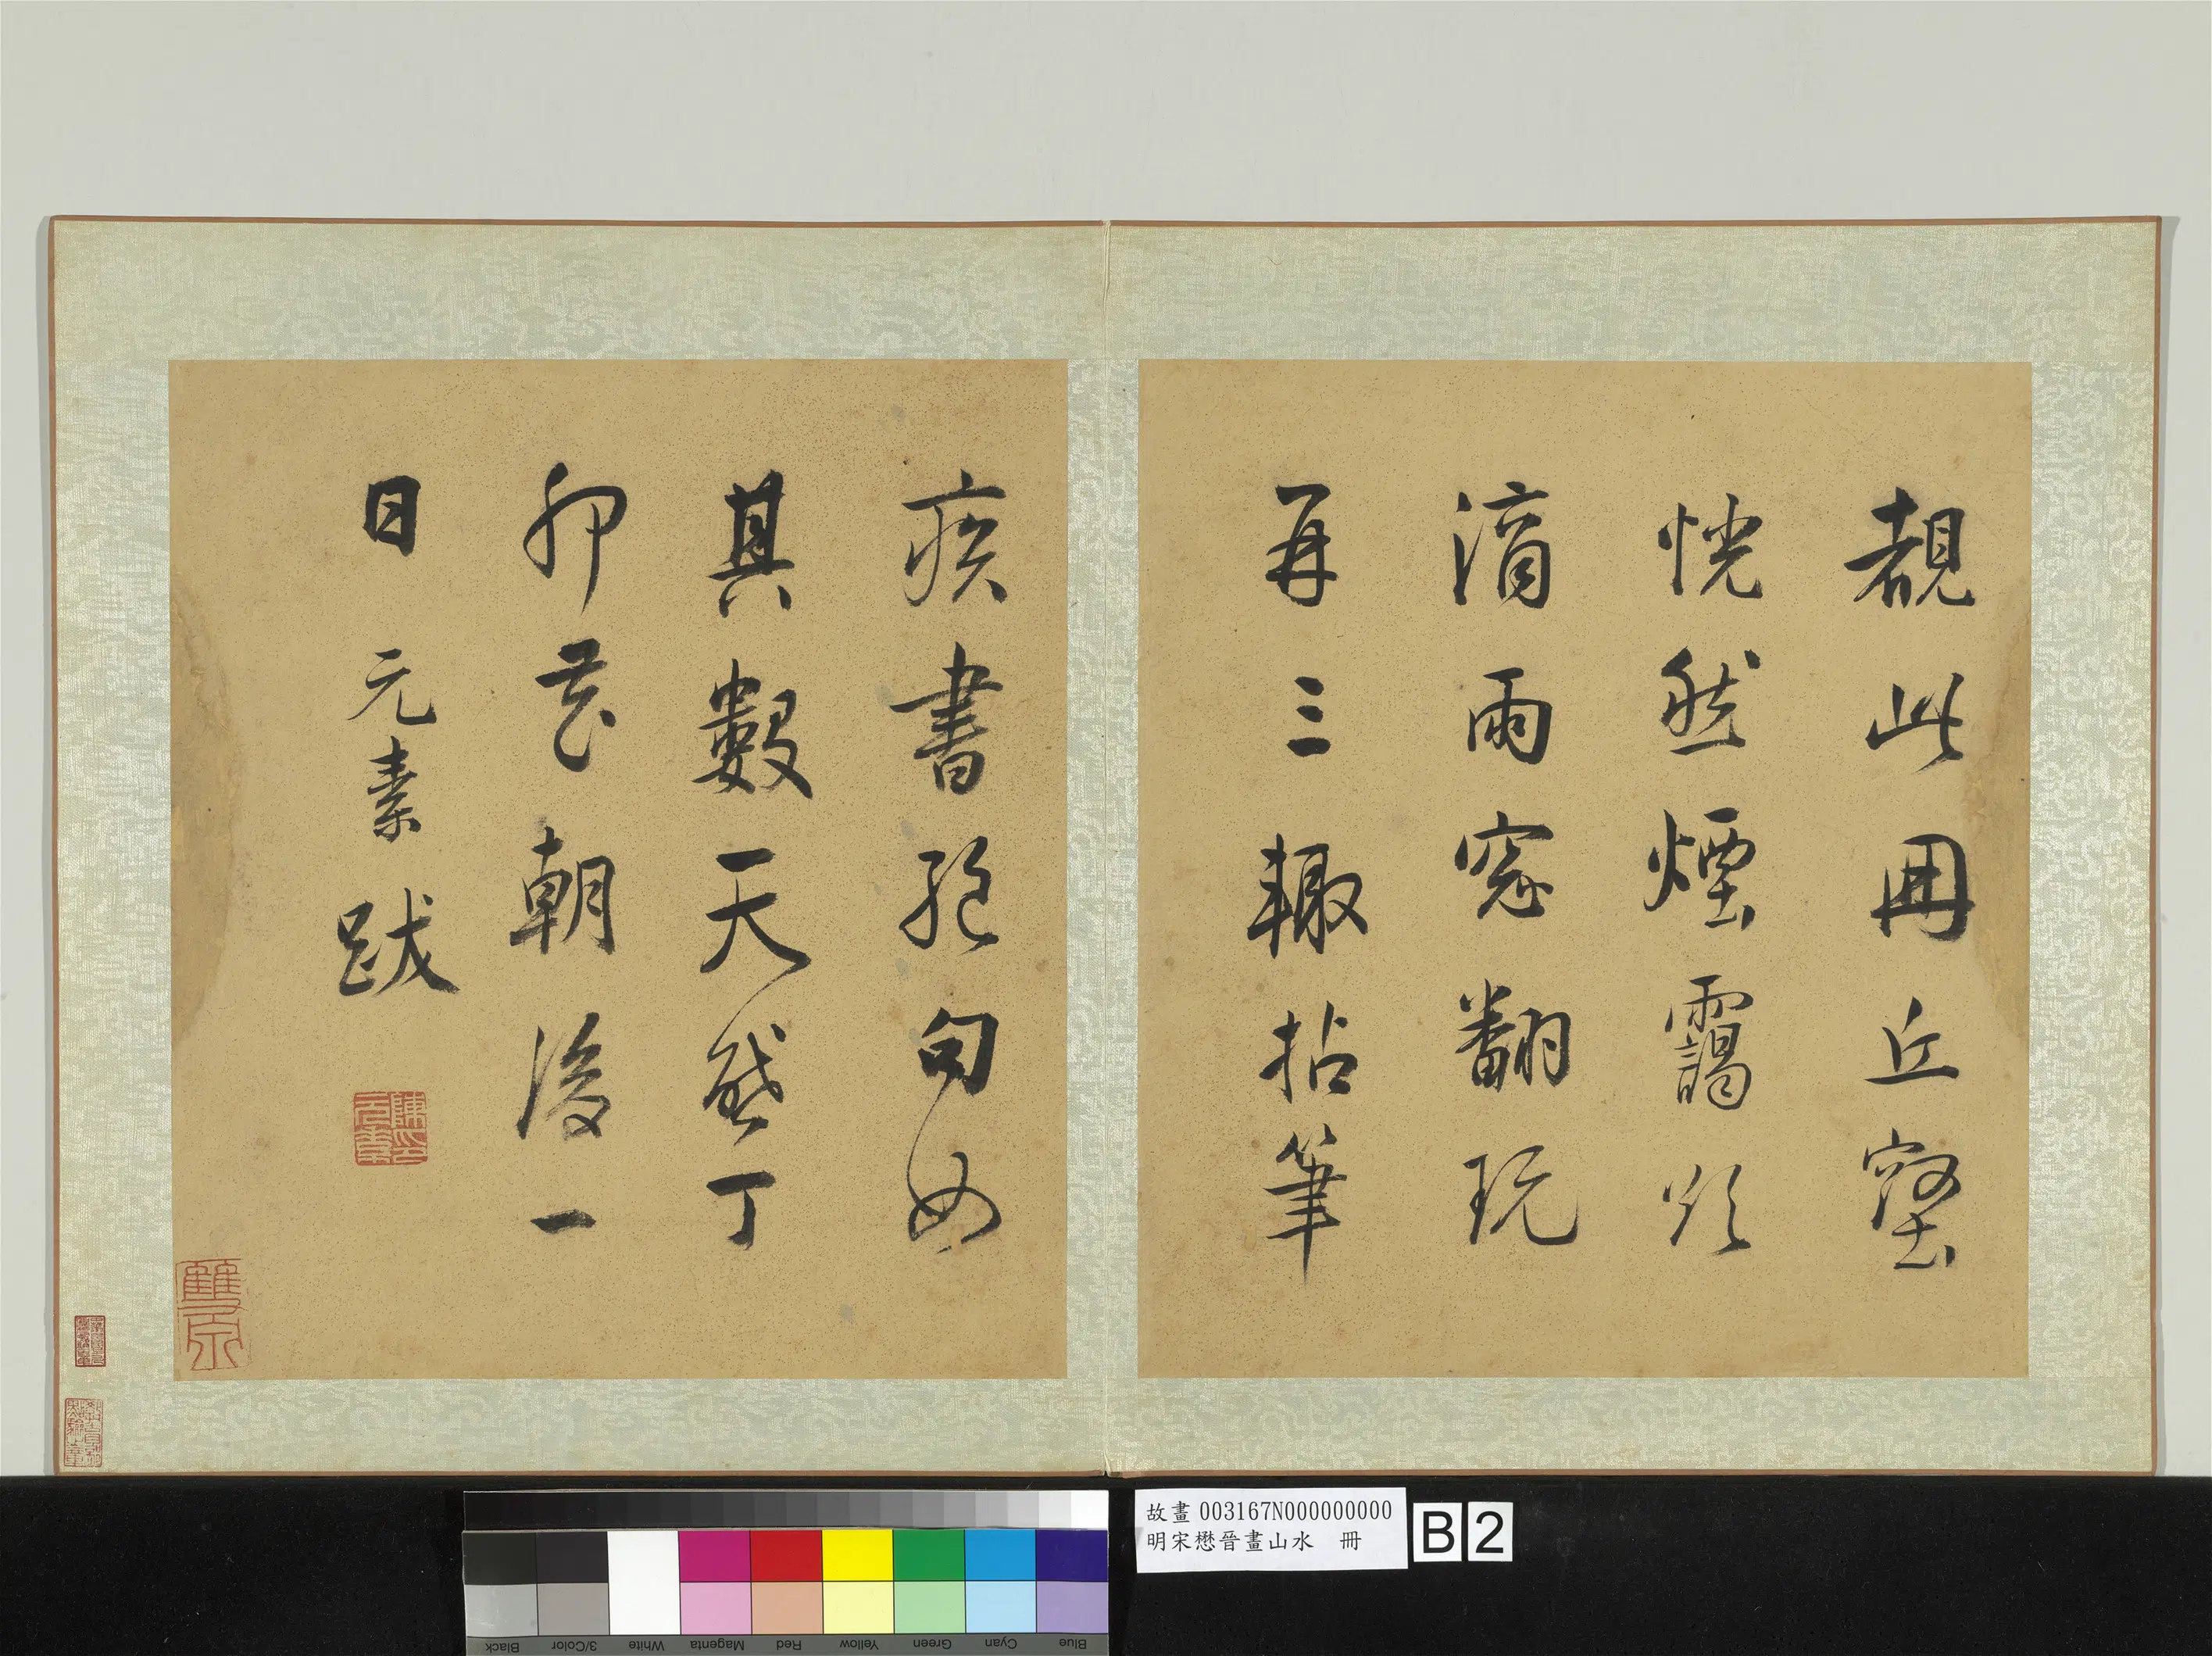 覩此冊丘壑
恍然煙靄欲
滴雨窓翻玩
再三輙拈筆
疾書絕句如
其數天啟丁
卯花朝後一
日元素跋
陳印元素
故畫 003167N000000000
明宋懋晉畫山水 冊
B 2
Black 3/Color White Magenta Red Yellow Green Cyan Blue